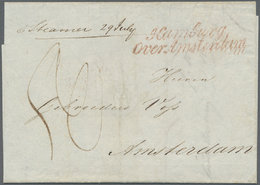 p Steamer 29 July
Hamburg
Over Amsterdam
Herren
Gebroeders Vos
Amsterdam